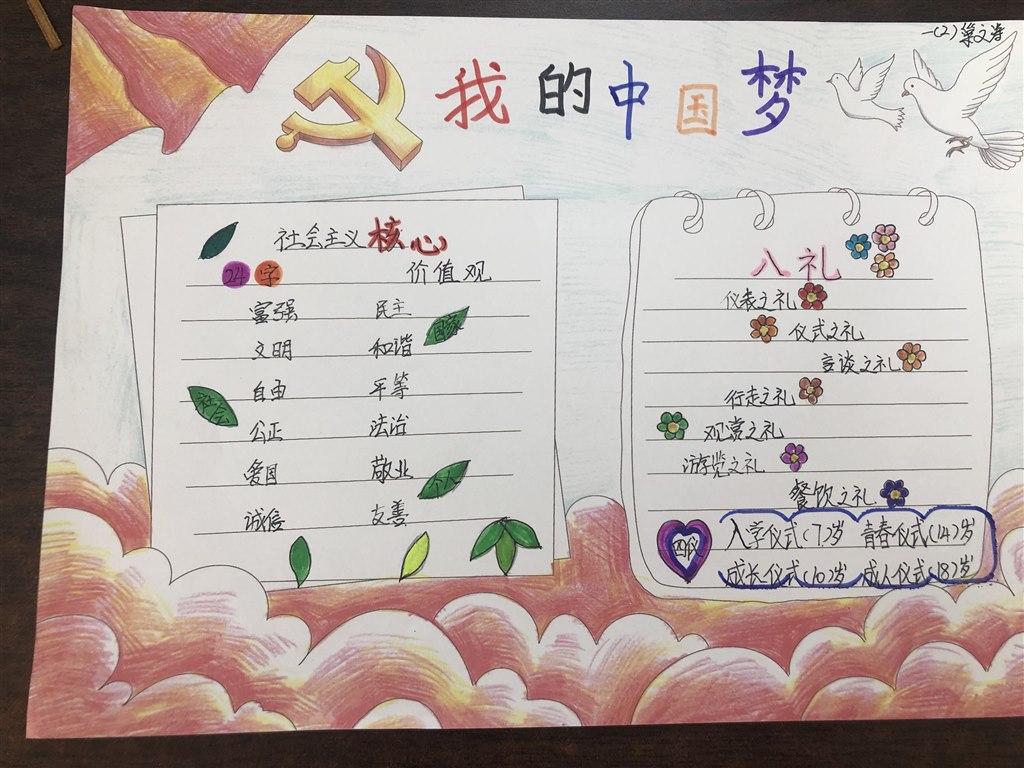 一(2)
我的中国梦
社会主义核心
24字 价值观
富强 民主
国家
文明 和谐
自由 平等
社会
公正 法治
爱国 敬业
个人
诚信 友善
八礼
仪表之礼
仪式之礼
言谈之礼
行走之礼
观赏之礼
游览之礼
餐饮之礼
四仪
入学仪式(7)岁 青春仪式(14)岁
成长仪式(10)岁 成人仪式(18)岁